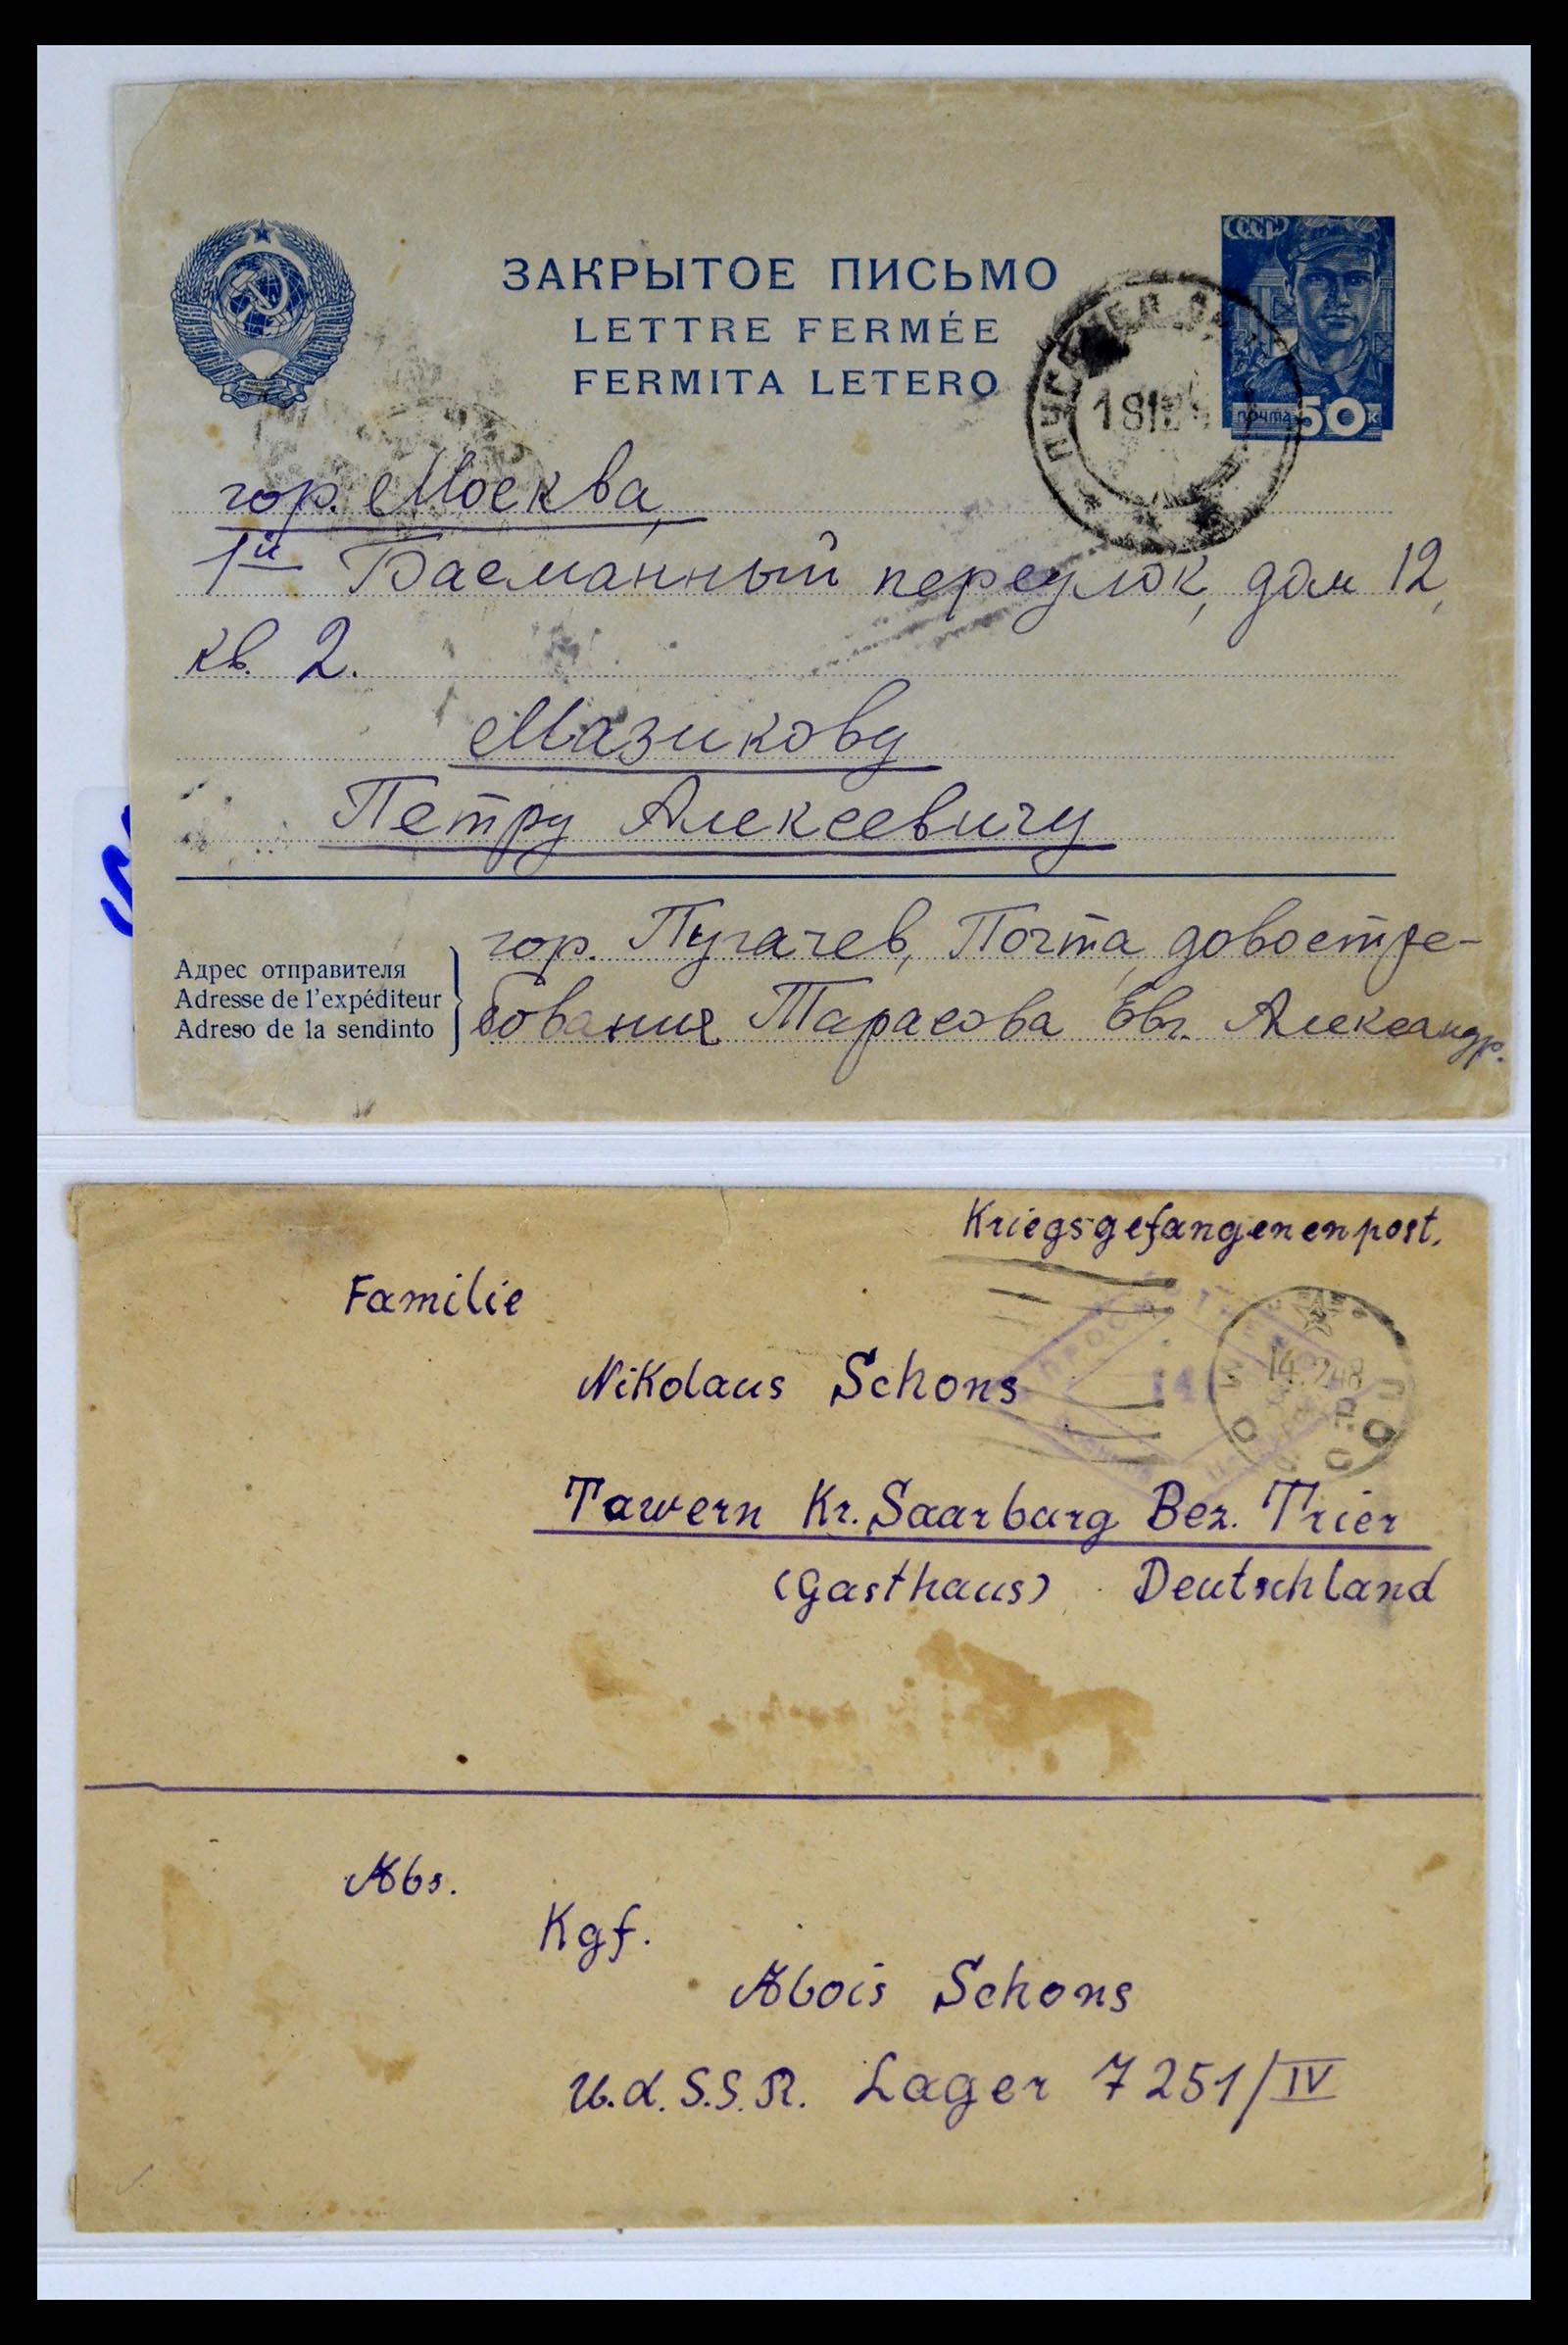 СССР
ЗАКРЫТОЕ ПИСЬМО
LETTRE FERMÉE
FERMITA LETERO
почта 50 к
гор. Москва,
1й Басманный переулок, дом 12,
кв. 2.
Мазикову
Петру Алексеевичу
Адрес отправителя
Adresse de l'expéditeur
Adreso de la sendinto
гор. Пугачев, Почта, довостре-
бования Тарасова Евг. Александр.
Kriegsgefangenenpost.
Familie
Nikolaus Schons
Tawern Kr. Saarburg Bez. Trier
(Gasthaus) Deutschland
Abs.
Kgf.
Alois Schons
U.d.S.S.R. Lager 7251/IV